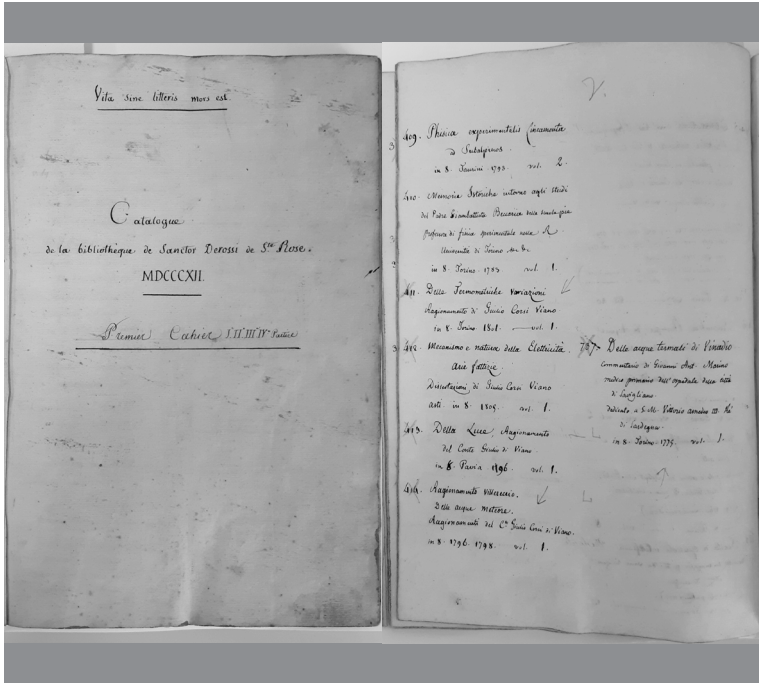 Vita sine litteris mors est.
Catalogue
de la bibliothèque de Sanctor Derossi de S.te Rose.
MDCCCXII.
Premier Cahier, I II III IV Partie
V.
409. Phisica experimentalis Lineamenta
ad Subalpinos
in 8. Taurini 1793. vol. 2.
410. Memorie Istoriche intorno agli studi
del Padre Giambattista Beccaria delle scuole pie
Professore di fisica sperimentale nella R.
Università di Torino
in 8. Torino 1783 vol. 1.
411. Delle Termometriche variazioni
Ragionamento di Giulio Corsi Viano
in 8. Torino 1801. vol. 1.
412. Mecanismo e natura della Elettricità
arie fattizie.
Dissertazioni di Giulio Corsi Viano
asti in 8. 1805. vol. 1.
413. Della Luce Ragionamento
del Conte Giulio di Viano.
in 8. Pavia 1796. vol. 1.
414. Ragionamento
Delle acque meteore.
Ragionamenti del C.te Giulio Corsi di Viano.
in 8. 1796. 1798. vol. 1.
Delle acque termali di Vinadio
commentario di Giovanni Ant. Marino
medico primario dell'ospedale della città
di Savigliano.
dedicato a S. M. Vittorio amedeo III. Rè
di Sardegna.
in 8. Torino 1775. vol. 1.